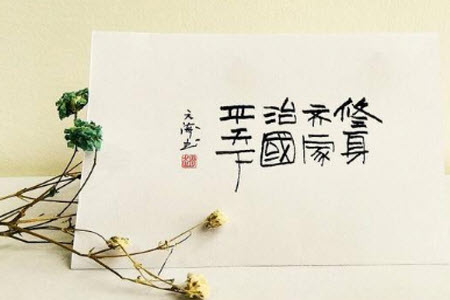 修身
齐家
治國
平天下